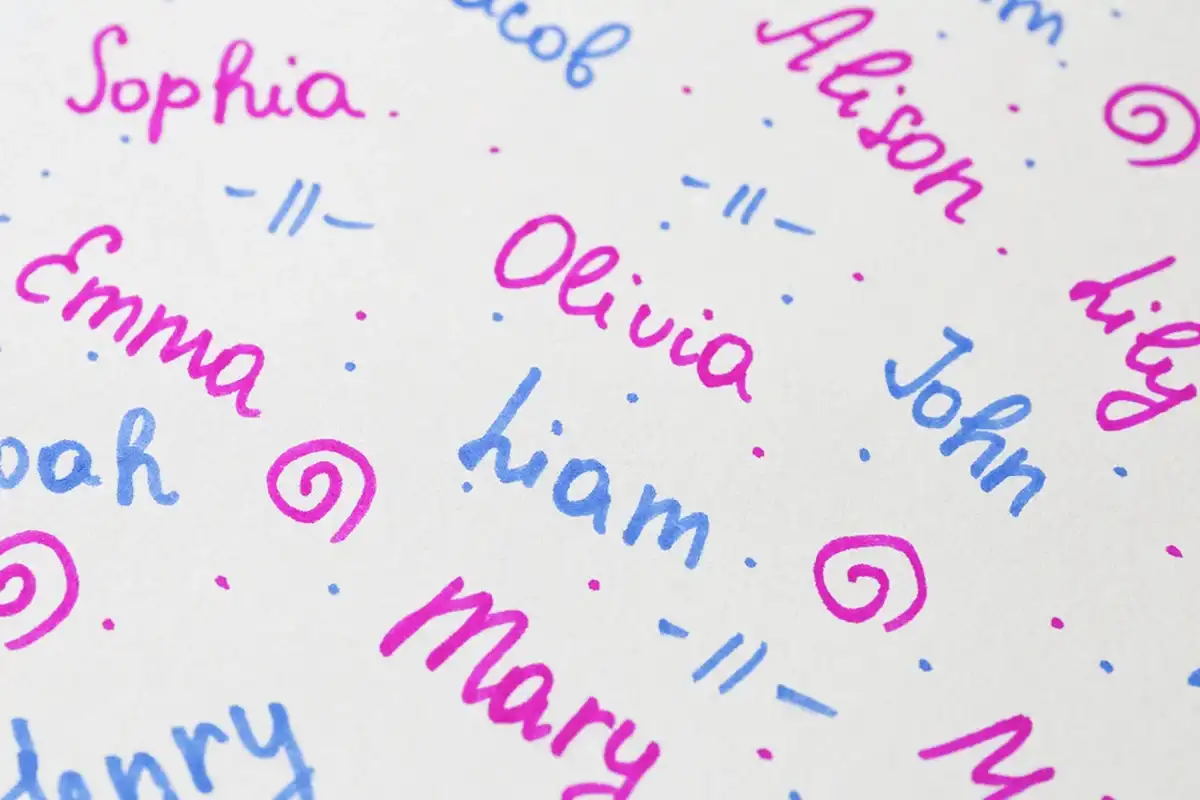 Sophia
acob
Alison
m
Emma
Olivia
Lily
John
oah
Liam
Mary
Henry